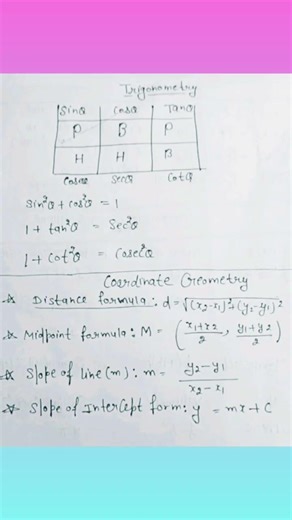 Trigonometry
Sinθ Cosθ Tanθ
P B P
H H B
Cosecθ Secθ Cotθ
Sin²θ + cos²θ = 1
1 + tan²θ = Sec²θ
1 + Cot²θ = Cosec²θ
Coordinate Geometry
Distance formula: d = √(x₂-x₁)²+(y₂-y₁)²
Midpoint formula: M = (x₁+x₂/2, y₁+y₂/2)
Slope of line(m): m = y₂-y₁/x₂-x₁
Slope of Intercept form: y = mx + C